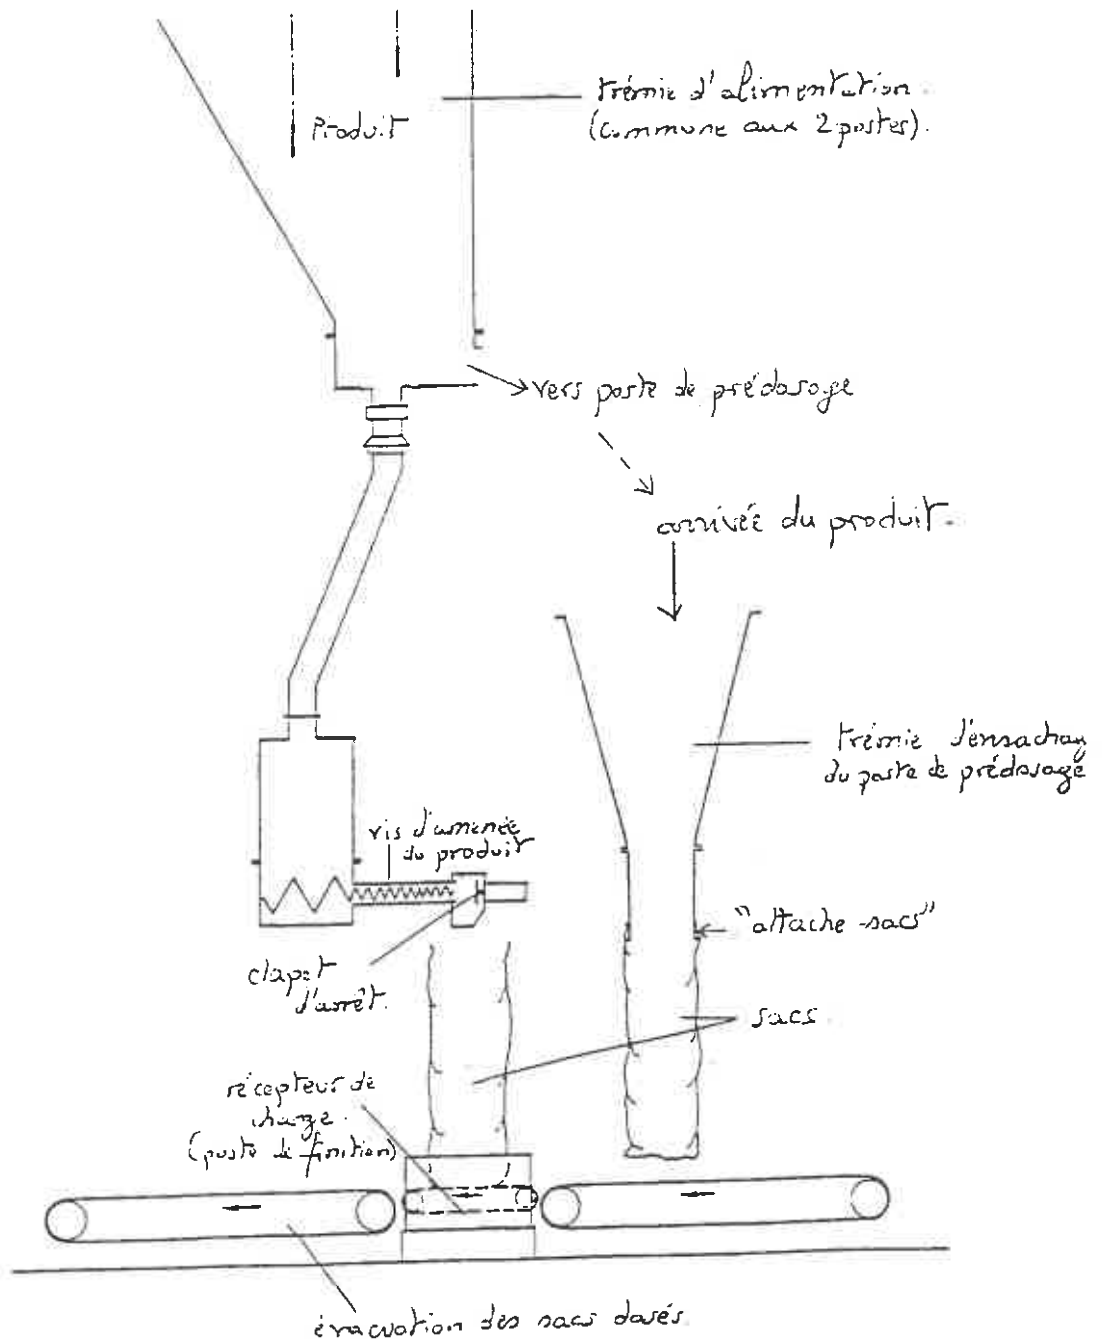 Produit
trémie d'alimentation.
(commune aux 2 postes).
vers poste de prédosage
arrivée du produit.
trémie d'ensachag
du poste de prédosage
vis d'amenée
du produit
"attache-sacs"
clapet
d'arrêt.
sacs.
récepteur de
charge.
(poste de finition)
évacuation des sacs dosés.